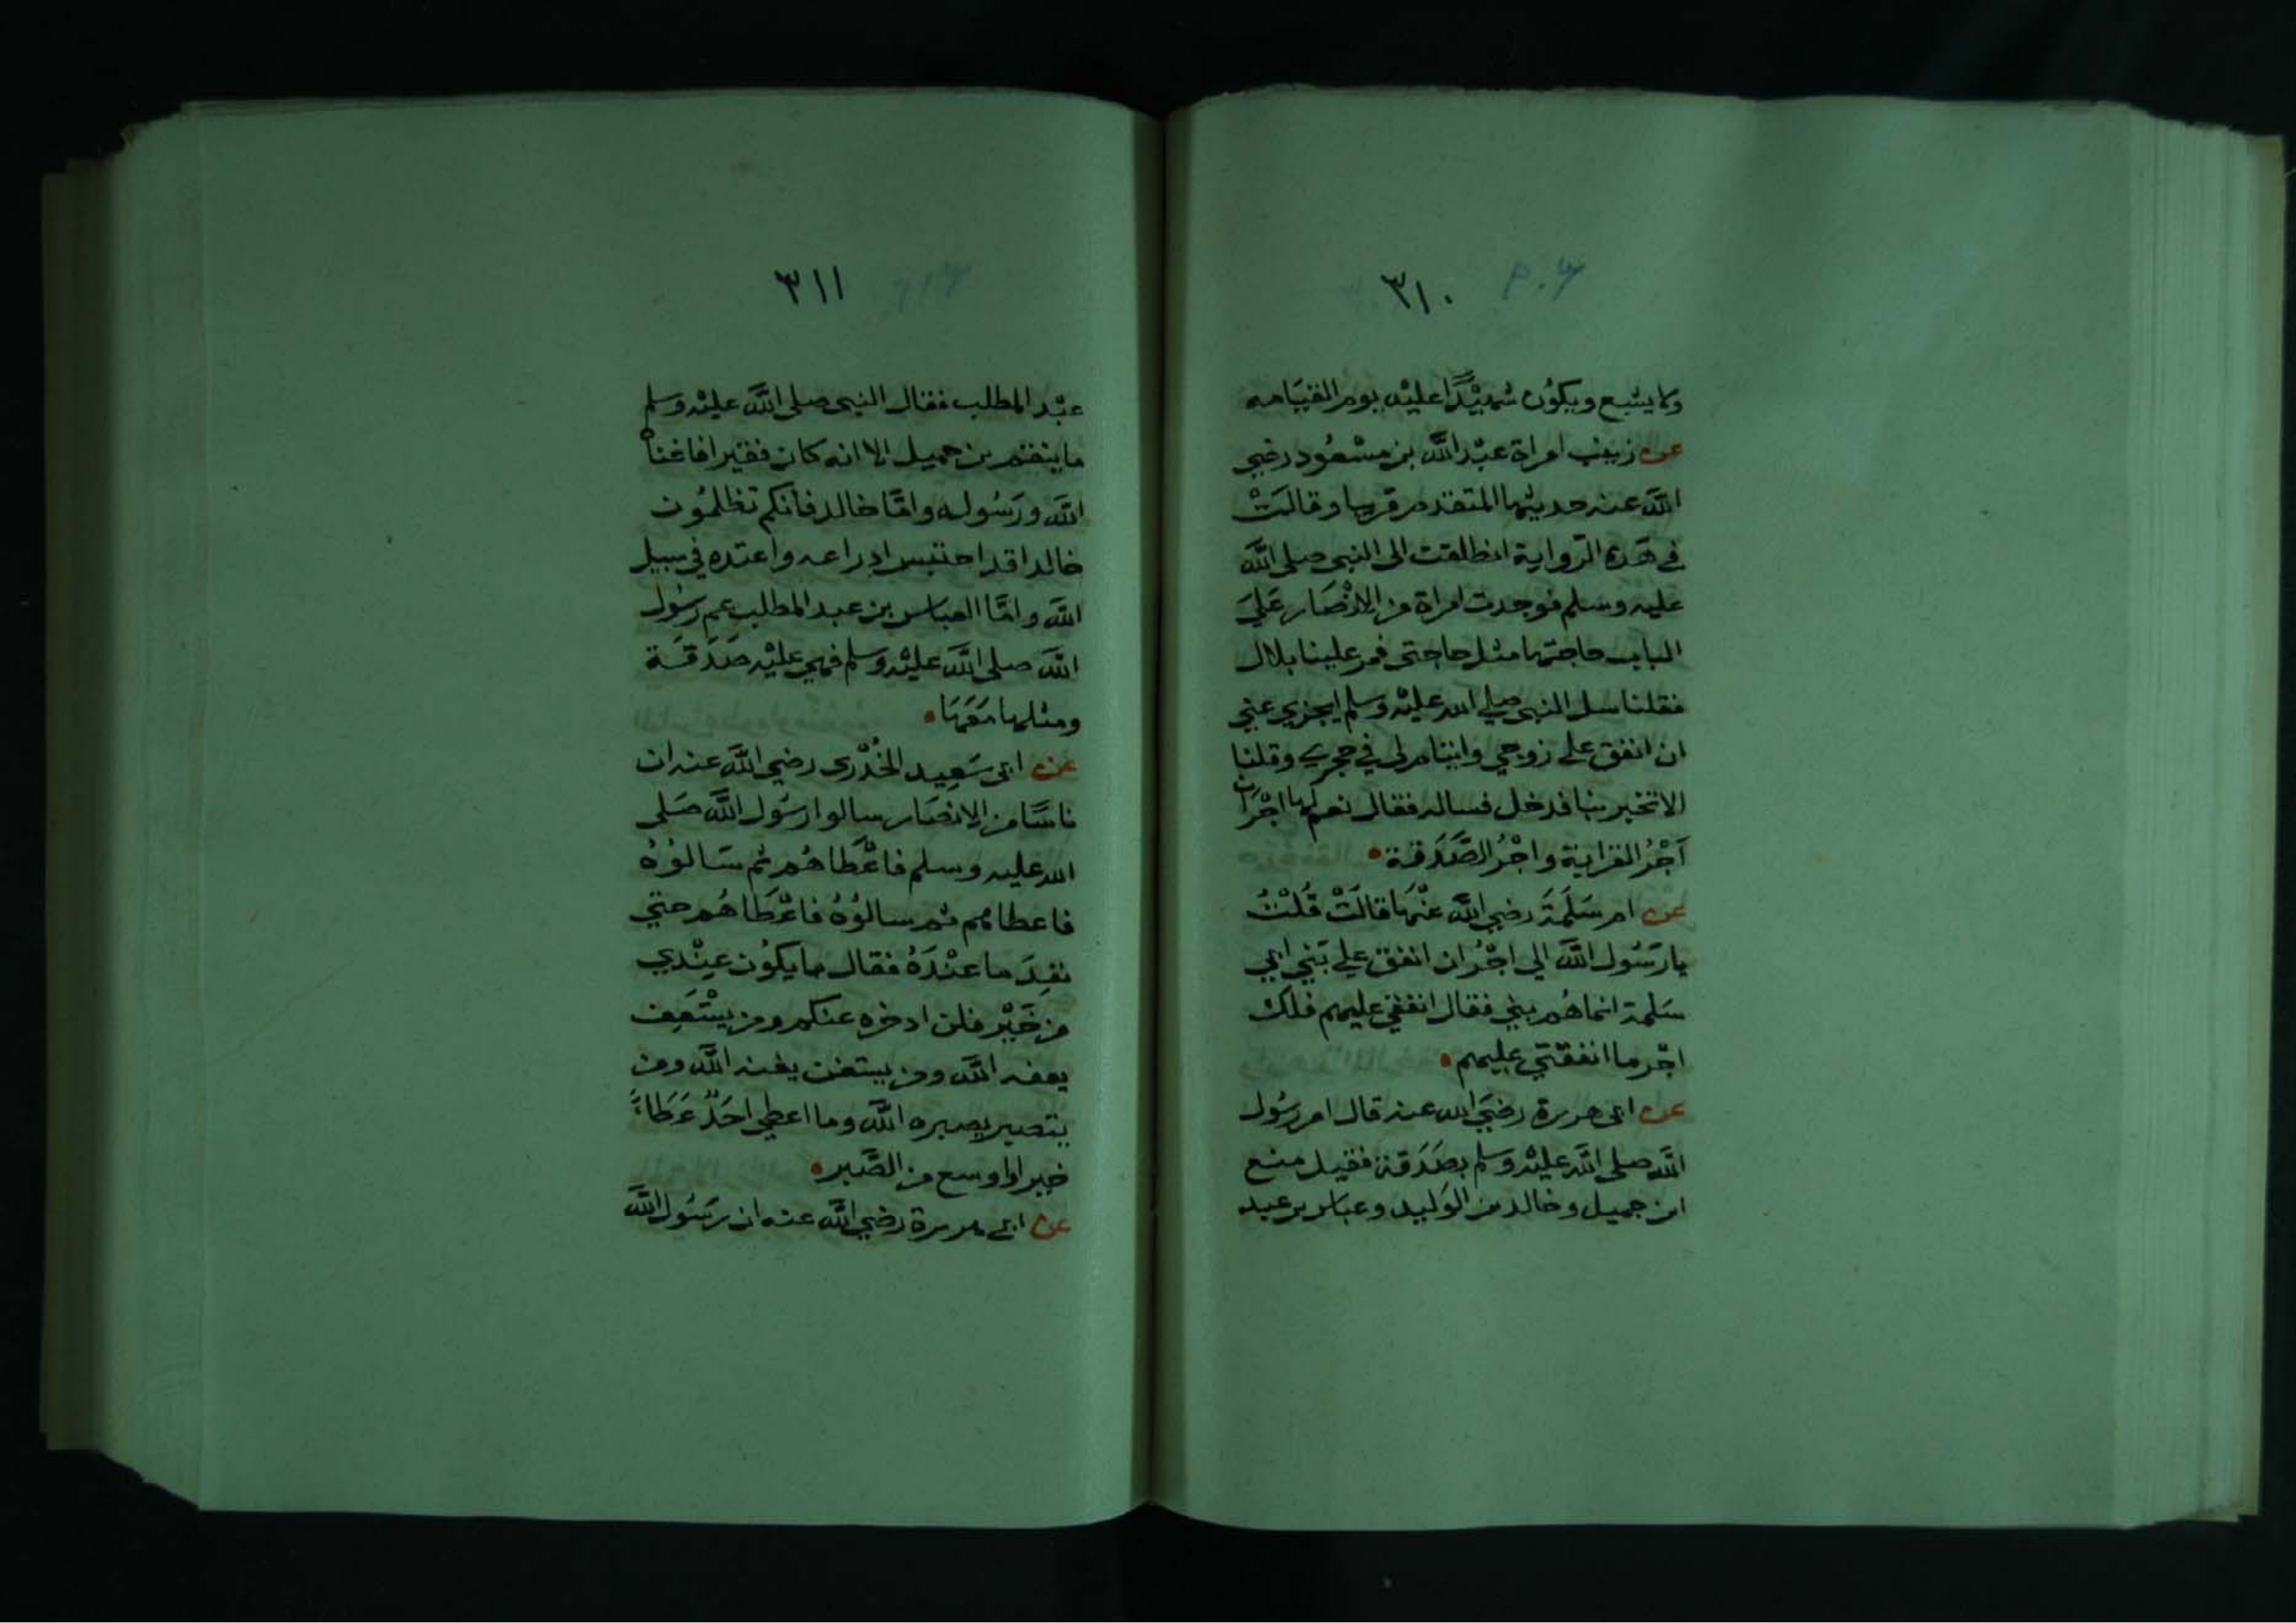 ٣١٠
ولا يشبع ويكون شهيدًا عليه يوم القيامه
عن زينب امراة عبد الله بن مسعود رضي
الله عنه حديثها المتقدم قريبا وقالت
في هذه الرواية انطلقت الى النبي صلى الله
عليه وسلم فوجدت امراة من الانصار علي
الباب حاجتها مثل حاجتى فمر علينا بلال
فقلنا سل النبي صلي الله عليه وسلم ايجزي عني
ان انفق علي زوجي وايتام لي في حجري وقلنا
لا تخبر بنا فدخل فساله فقال نعم لها اجران
اجر القرابة واجر الصدقة
عن ام سلمة رضي الله عنها قالت قلت
يا رسول الله الي اجر ان انفق علي بني ابي
سلمة انما هم بني فقال انفقي عليهم فلك
اجر ما انفقتي عليهم
عن ابى هريرة رضي الله عنه قال امر رسول
الله صلى الله عليه وسلم بصدقة فقيل منع
ابن جميل وخالد بن الوليد وعباس بن عبد
٣١١
عبد المطلب فقال النبى صلى الله عليه وسلم
ما ينقم بن جميل الا انه كان فقيرا فاغناه
الله ورسوله واما خالد فانكم تظلمون
خالدا قد احتبس ادراعه واعتده في سبيل
الله واما العباس بن عبد المطلب عم رسول
الله صلى الله عليه وسلم فهي عليه صدقة
ومثلها معها
عن ابى سعيد الخدرى رضي الله عنه ان
ناسًا من الانصار سالوا رسول الله صلى
الله عليه وسلم فاعطاهم ثم سالوه
فاعطاهم ثم سالوه فاعطاهم حتي
نفد ما عنده فقال ما يكون عندي
من خير فلن ادخره عنكم ومن يستعفف
يعفه الله ومن يستغن يغنه الله ومن
يتصبر يصبره الله وما اعطي احد عطاءً
خيرا واوسع من الصبر
عن ابى هريرة رضي الله عنه ان رسول الله